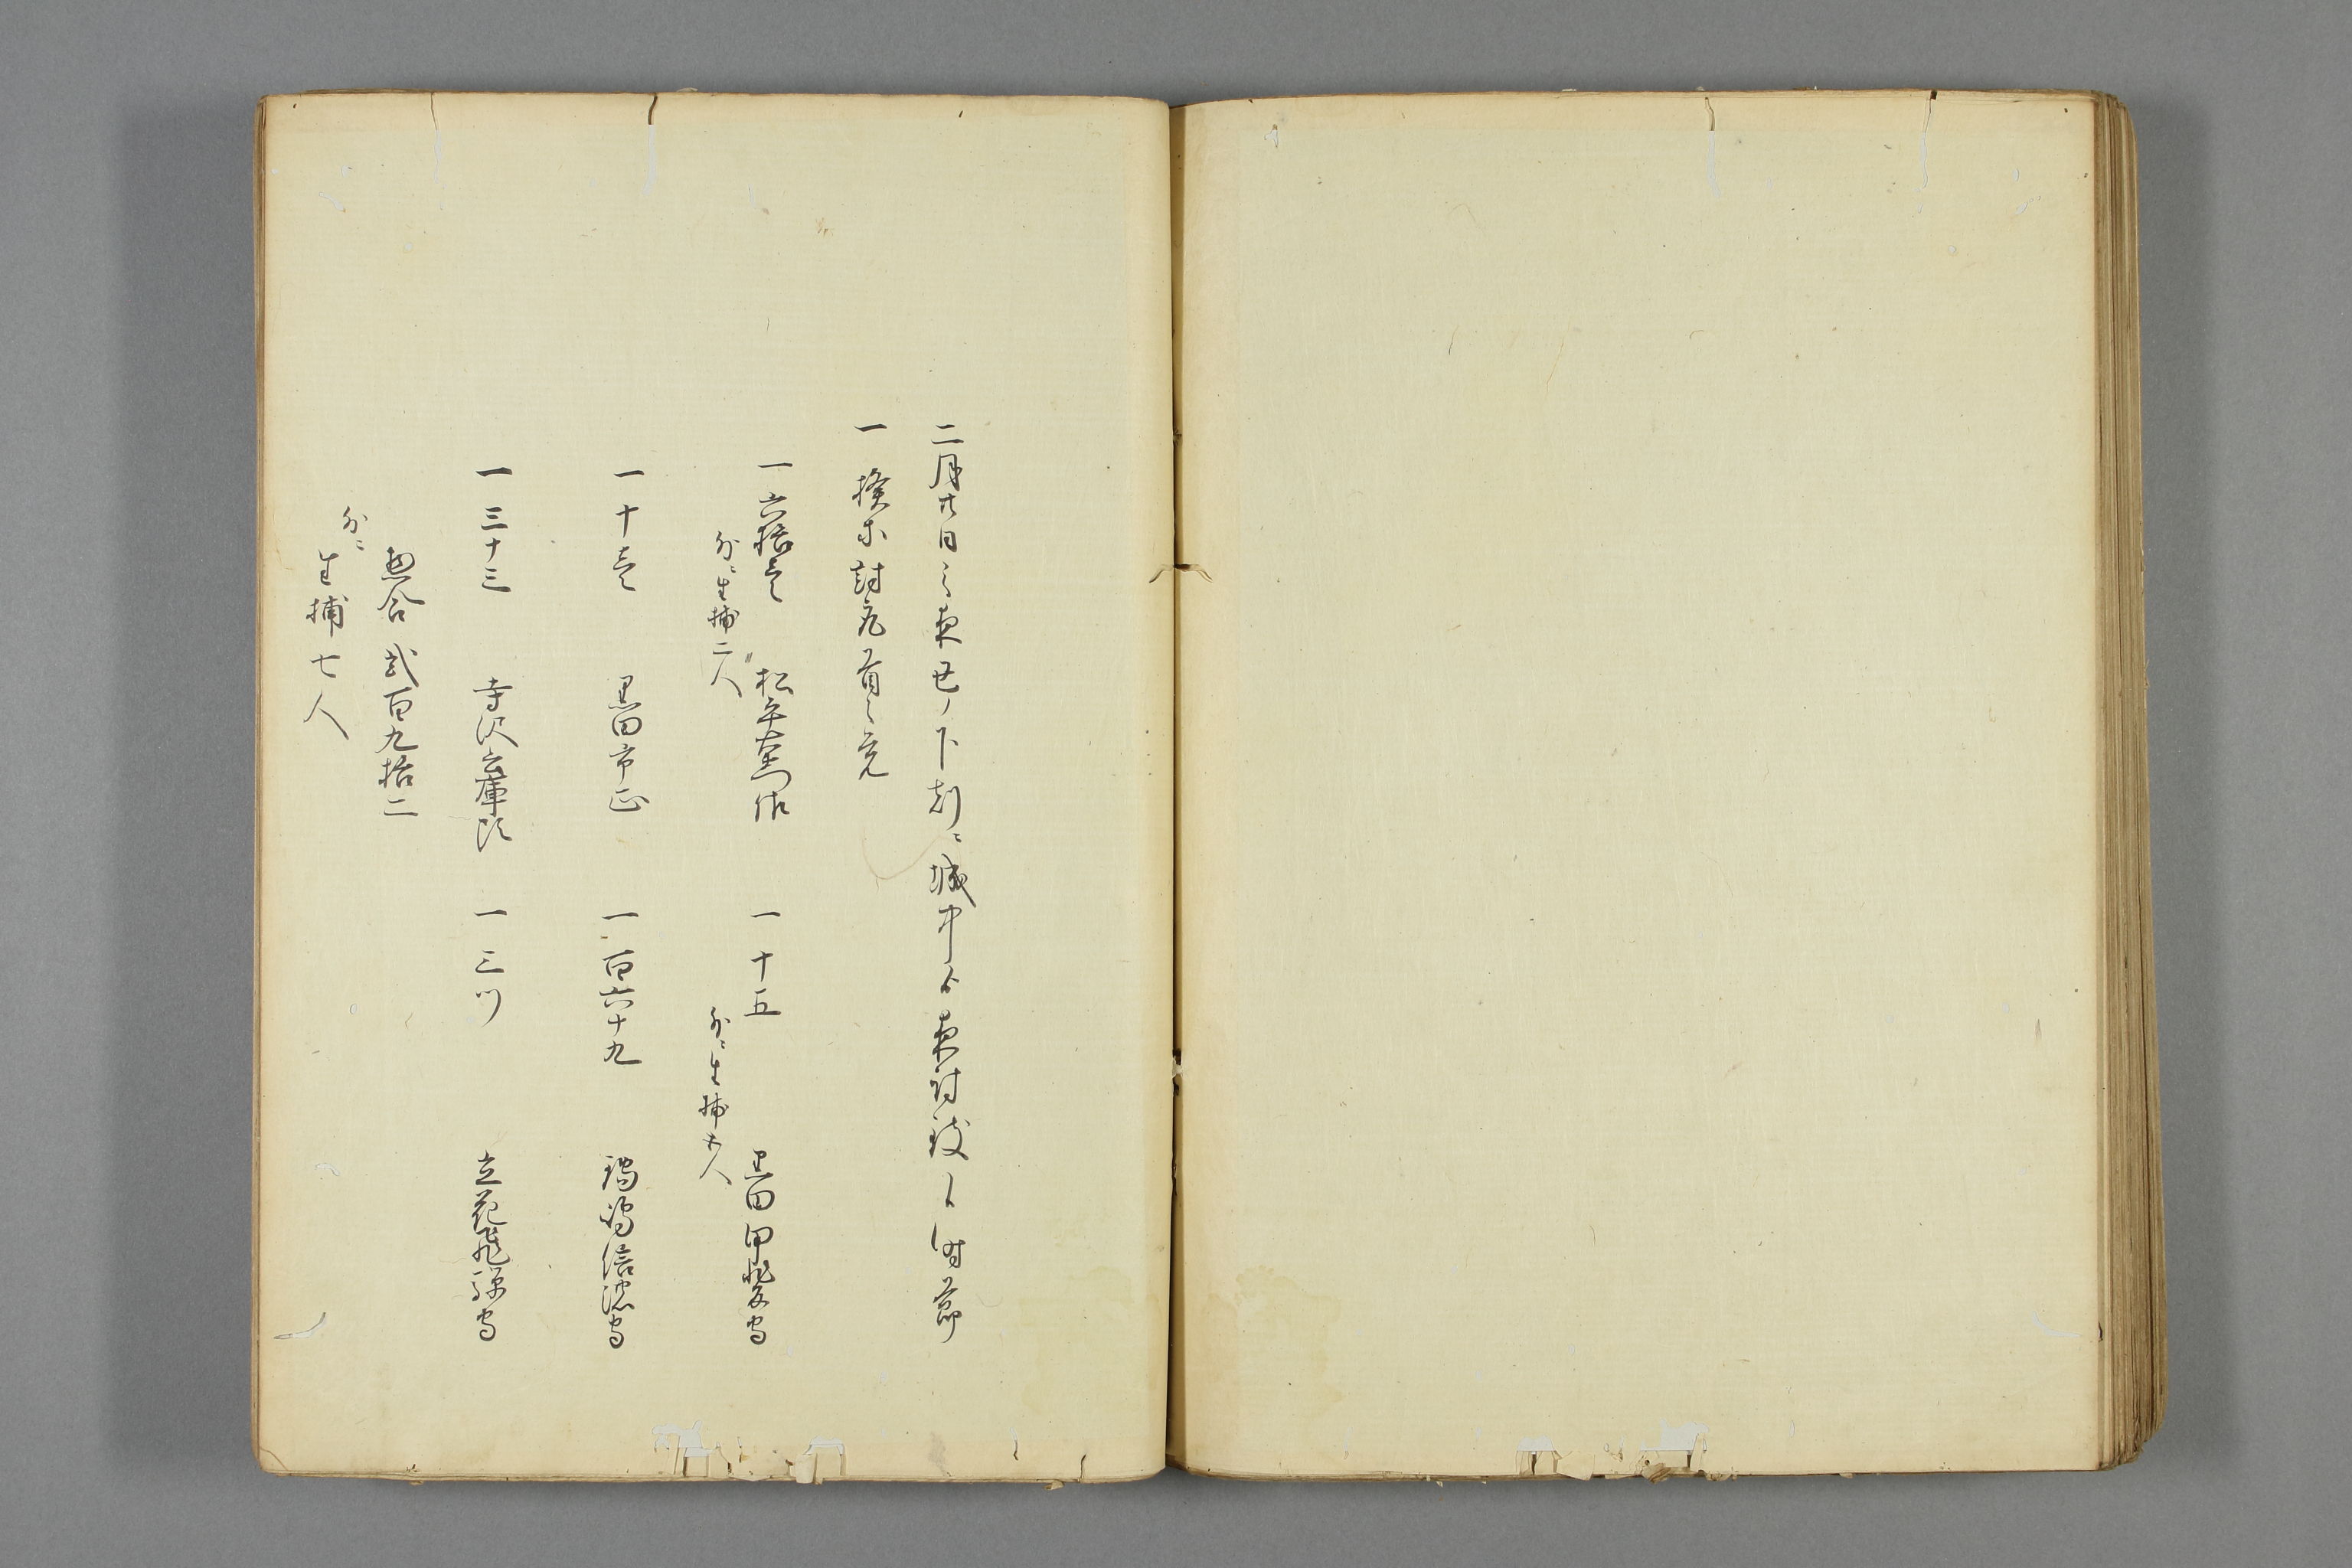 二月廿日之夜丑ノ下刻ニ城中ゟ夜討致し候時節
一揆等討取首之覚
一六拾壱　松平右衛門佐　一十五　黒田甲斐守
外ニ生捕二人　外ニ生捕五人
一十壱　黒田市正　一百六十九　鍋嶋信濃守
一三十三　寺沢兵庫頭　一三ツ　立花飛騨守
惣合　弐百九拾二
外ニ生捕七人